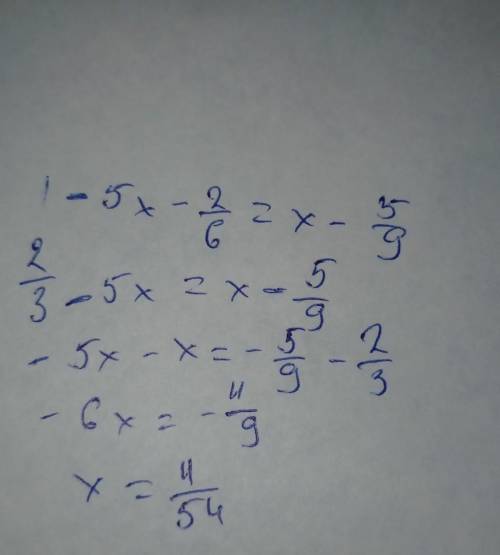 1 - 5x - 2/6 = x - 5/9
2/3 - 5x = x - 5/9
- 5x - x = - 5/9 - 2/3
- 6x = - 11/9
x = 11/54